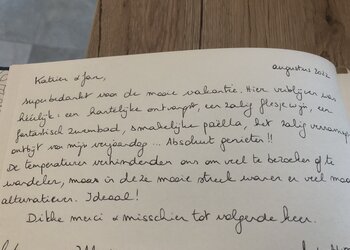 augustus 2022
Katrien & Jan,
superbedankt voor de mooie vakantie. Hier verblijven was
heerlijk: een hartelijke ontvangst, een zalig flesje wijn, een
fantastisch zwembad, smakelijke paëlla, het zalig
ontbijt van mijn verjaardag... Absoluut genieten!!
De temperaturen verhinderden ons om veel te bezoeken of te
wandelen, maar in deze mooie streek waren er veel mooie
alternatieven. Ideaal!
Dikke merci & misschien tot volgende keer.